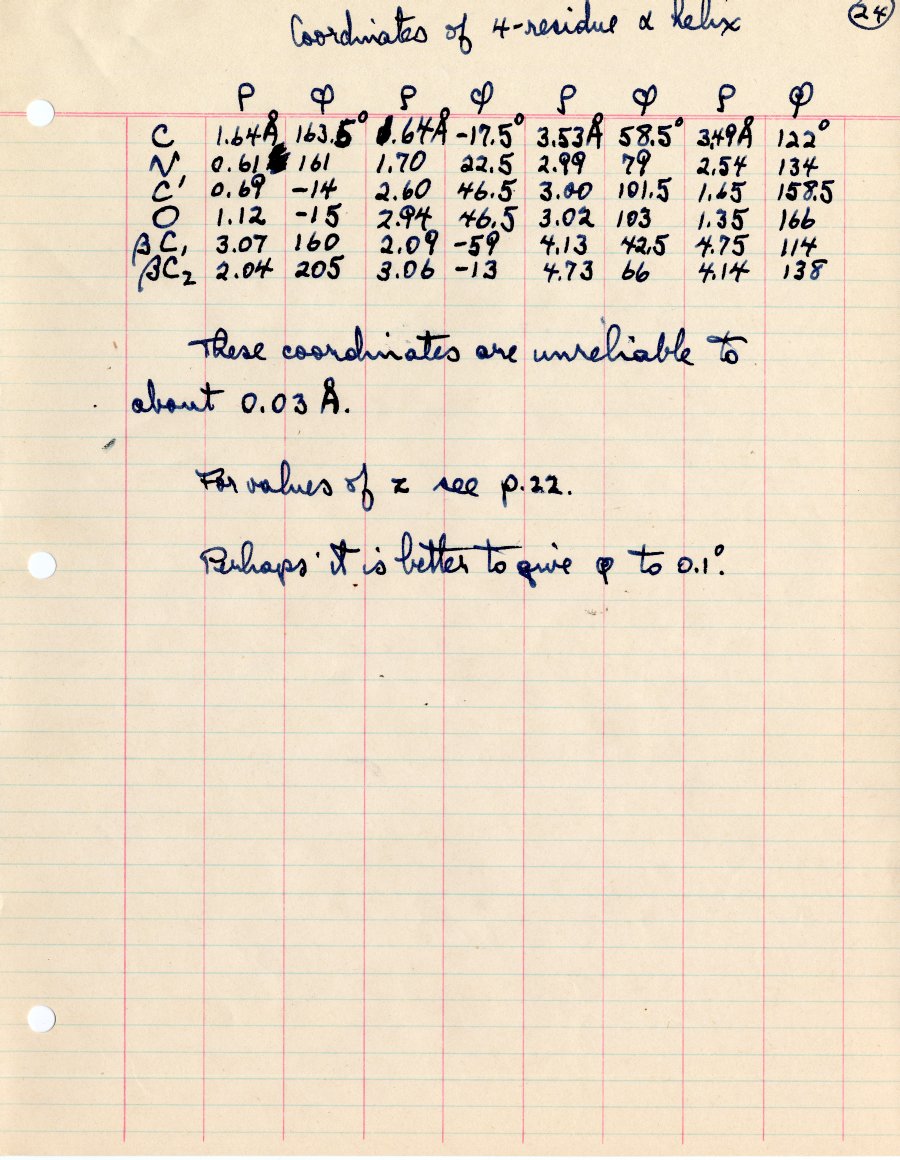 24
Coordinates of 4-residue α helix
ρ φ ρ φ ρ φ ρ φ
C 1.64Å 163.5° 1.64Å -17.5° 3.53Å 58.5° 3.49Å 122°
N 0.61 161 1.70 22.5 2.99 79 2.54 134
C' 0.69 -14 2.60 46.5 3.00 101.5 1.65 158.5
O 1.12 -15 2.94 46.5 3.02 103 1.35 166
βC₁ 3.07 160 2.09 -59 4.13 42.5 4.75 114
βC₂ 2.04 205 3.06 -13 4.73 66 4.14 138
These coordinates are unreliable to
about 0.03 Å.
For values of z see p.22.
Perhaps it is better to give φ to 0.1°.